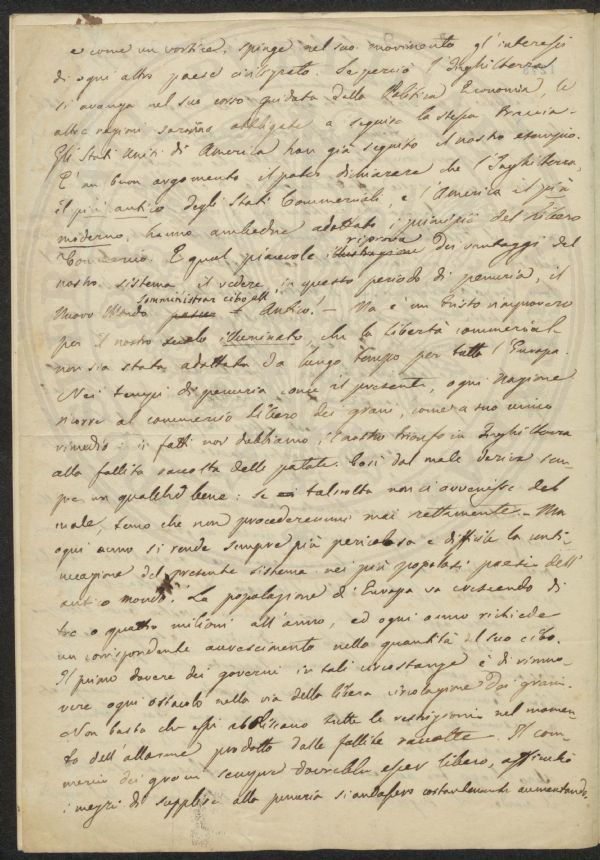 e come un vortice, spinge nel suo movimento gl'interessi
di ogni altro paese incivilito. Se perciò l'Inghilterra
si avanza nel suo corso guidata dalla Politica Economia, le
altre nazioni saranno obbligate a seguire la stessa traccia.
Gli Stati Uniti di America han già seguito il nostro esempio.
E' un buon argomento il poter dichiarare che l'Inghilterra,
il più antico degli Stati Commerciali, e l'America il più
moderno, hanno ambedue adottato i principii del libero
Commercio. E qual piacevole riprova dei vantaggi del
nostro sistema il vedere in questo periodo di penuria, il
Nuovo Mondo somministrar cibo all' Antico! — Ma è un tristo rimprovero
per il nostro secolo illuminato, che la libertà commerciale
non sia stata adottata da lungo tempo per tutta l'Europa.
Nei tempi di penuria come il presente, ogni Nazione
ricorre al commercio libero dei grani, come a suo unico
rimedio: infatti noi dobbiamo il nostro trionfo in Inghilterra
alla fallita raccolta delle patate. Così dal male deriva sem-
pre un qualche bene: se talvolta non ci avvenisse del
male, temo che non procederemmo mai rettamente. — Ma
ogni anno si rende sempre più pericolosa e difficile la conti-
nuazione del presente sistema nei più popolati paesi dell'
antico mondo. La popolazione di Europa va crescendo di
tre o quattro milioni all'anno, ed ogni anno richiede
un corrispondente accrescimento nella quantità del suo cibo.
Il primo dovere dei governi in tali circostanze è di rimuo-
vere ogni ostacolo nella via della libera circolazione dei grani.
Non basta che essi aboliscano tutte le restrizioni nel momen-
to dell'allarme prodotto dalle fallite raccolte. Il com-
mercio dei grani sempre dovrebbe esser libero, affinchè
i mezzi di supplire alla penuria si andassero costantemente aumentando,